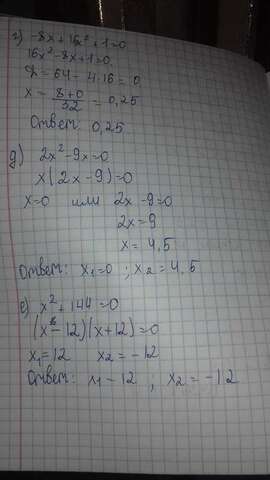 г) -8x+16x²+1=0
16x²-8x+1=0
D=64-4·16=0
x=8+0/32=0,25
Ответ: 0,25
д) 2x²-9x=0
x(2x-9)=0
x=0 или 2x-9=0
2x=9
x=4,5
Ответ: x₁=0; x₂=4,5
е) x²+144=0
(x-12)(x+12)=0
x₁=12 x₂=-12
Ответ: x₁-12, x₂=-12